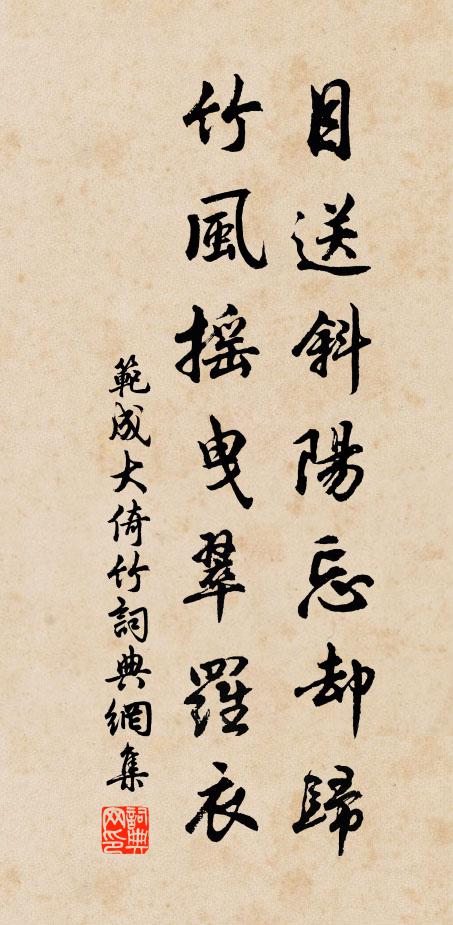 目送斜陽忘却歸
竹風搖曳翠羅衣
範成大倚竹詞典網集
詞典網印